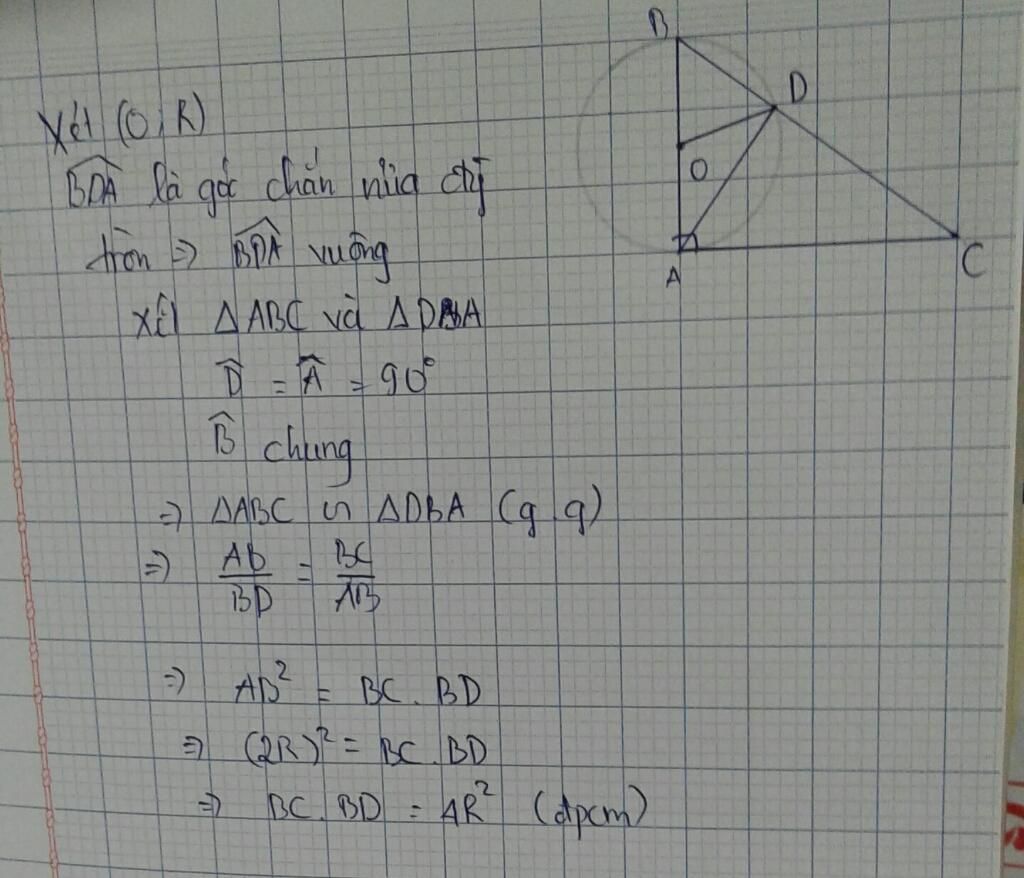 Xét (O; R)
BDA là góc chắn nửa đg
tròn ⇒ BDA vuông
Xét ΔABC và ΔDBA
D̂ = Â = 90°
B̂ chung
⇒ ΔABC ∽ ΔDBA (g.g)
⇒ AB/BD = BC/AB
⇒ AB² = BC.BD
⇒ (2R)² = BC.BD
⇒ BC.BD = 4R² (đpcm)
B
D
O
A
C